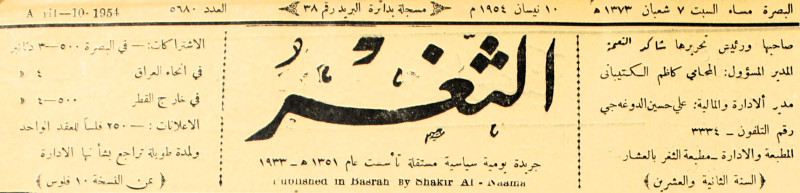 البصرة مساء السبت ٧ شعبان ١٣٧٣ ه
١٠ نيسان ١٩٥٤ م
مسجلة بدائرة البريد رقم ٣٨
العدد ٥٦٨٠
A ril-10-1954
صاحبها ورئيس تحريرها شاكر النعمة
المدير المسؤول: المحامي كاظم الكتيباني
مدير الادارة والمالية: علي حسين الدوغه جي
رقم التلفون — ٣٣٣٤
المطبعة والادارة — مطبعة الثغر بالعشار
﴿ السنة الثانية والعشرين ﴾
الثغر
جريدة يومية سياسية مستقلة تأسست عام ١٣٥١ ه — ١٩٣٣
Published in Basrah By Shakir Al - Naama
الاشتراكات: — في البصرة ٥٠٠—٣ دنانير
في انحاء العراق ٤ »
في خارج القطر ٥٠٠—٤ »
الاعلانات: — ٢٥٠ فلساً للعقد الواحد
ولمدة طويلة تراجع بشأنها الادارة
﴿ ثمن النسخة ١٠ فلوس ﴾